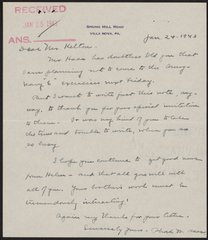 RECEIVED
JAN 26 1943
ANS.
SPRING MILL ROAD
VILLA NOVA, PA.
Jan 24 - 1943
Dear Mr. Helton
Mr. Haas has doubtless told you that
I am planning not to come to the Army-
Navy "E" exercises next Friday.
And I want to write just this note any-
way, to thank you for your special invitation
to them. It was very kind of you to take
the time and trouble to write, when you are
so busy.
I hope you continue to get good news
from Helen - and that all goes well with
all of you. Your brother's work must be
tremendously interesting!
Again my thanks for your letter.
Sincerely yours,